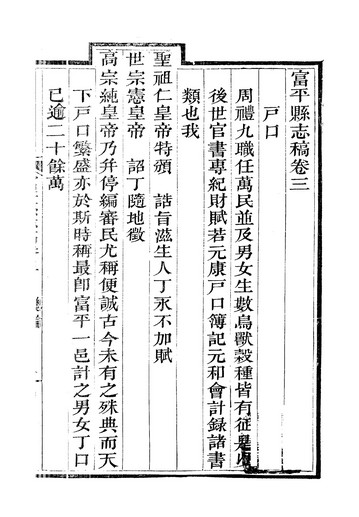 富平縣志稿卷三
戸口
周禮九職任萬民並及男女生數鳥獸穀種皆有征是以
後世官書專紀財賦若元康戸口簿記元和會計録諸書
類也我
聖祖仁皇帝特頒 詔旨滋生人丁永不加賦
世宗憲皇帝 詔丁隨地徵
高宗純皇帝乃并停編審民尤稱便誠古今未有之殊典而天
下戸口繁盛亦於斯時稱最卽富平一邑計之男女丁口
已逾二十餘萬